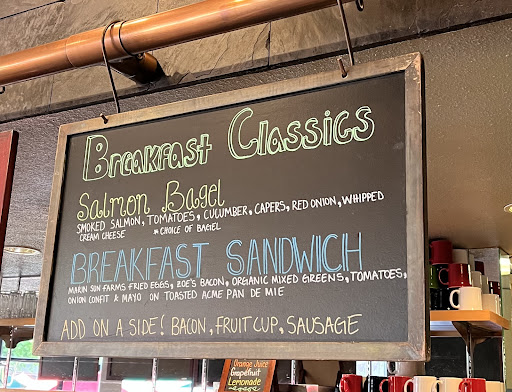 Breakfast Classics
Salmon Bagel
SMOKED SALMON, TOMATOES, CUCUMBER, CAPERS, RED ONION, WHIPPED
CREAM CHEESE * CHOICE OF BAGEL
BREAKFAST SANDWICH
MARIN SUN FARMS FRIED EGGS, ZOE'S BACON, ORGANIC MIXED GREENS, TOMATOES,
ONION CONFIT & MAYO ON TOASTED ACME PAN DE MIE
ADD ON A SIDE! BACON, FRUIT CUP, SAUSAGE
Orange Juice
Grapefruit
Lemonade